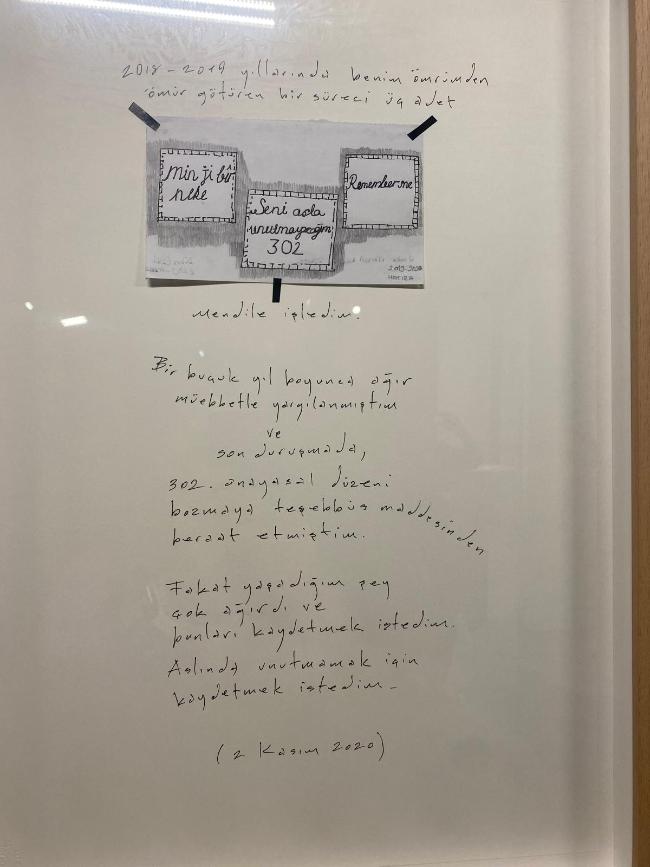 2018-2019 yıllarında benim ömrümden
ömür götüren bir süreci üç adet
Min ji bîr
neke
Seni asla
unutmayacağım
302
Remember me
2019-2020
mendile işledim.
Bir buçuk yıl boyunca ağır
müebbetle yargılanmıştım
ve
son duruşmada,
302. anayasal düzeni
bozmaya teşebbüs maddesinden
beraat etmiştim.
Fakat yaşadığım şey
çok ağırdı ve
bunları kaydetmek istedim.
Aslında unutmamak için
kaydetmek istedim-
(2 Kasım 2020)